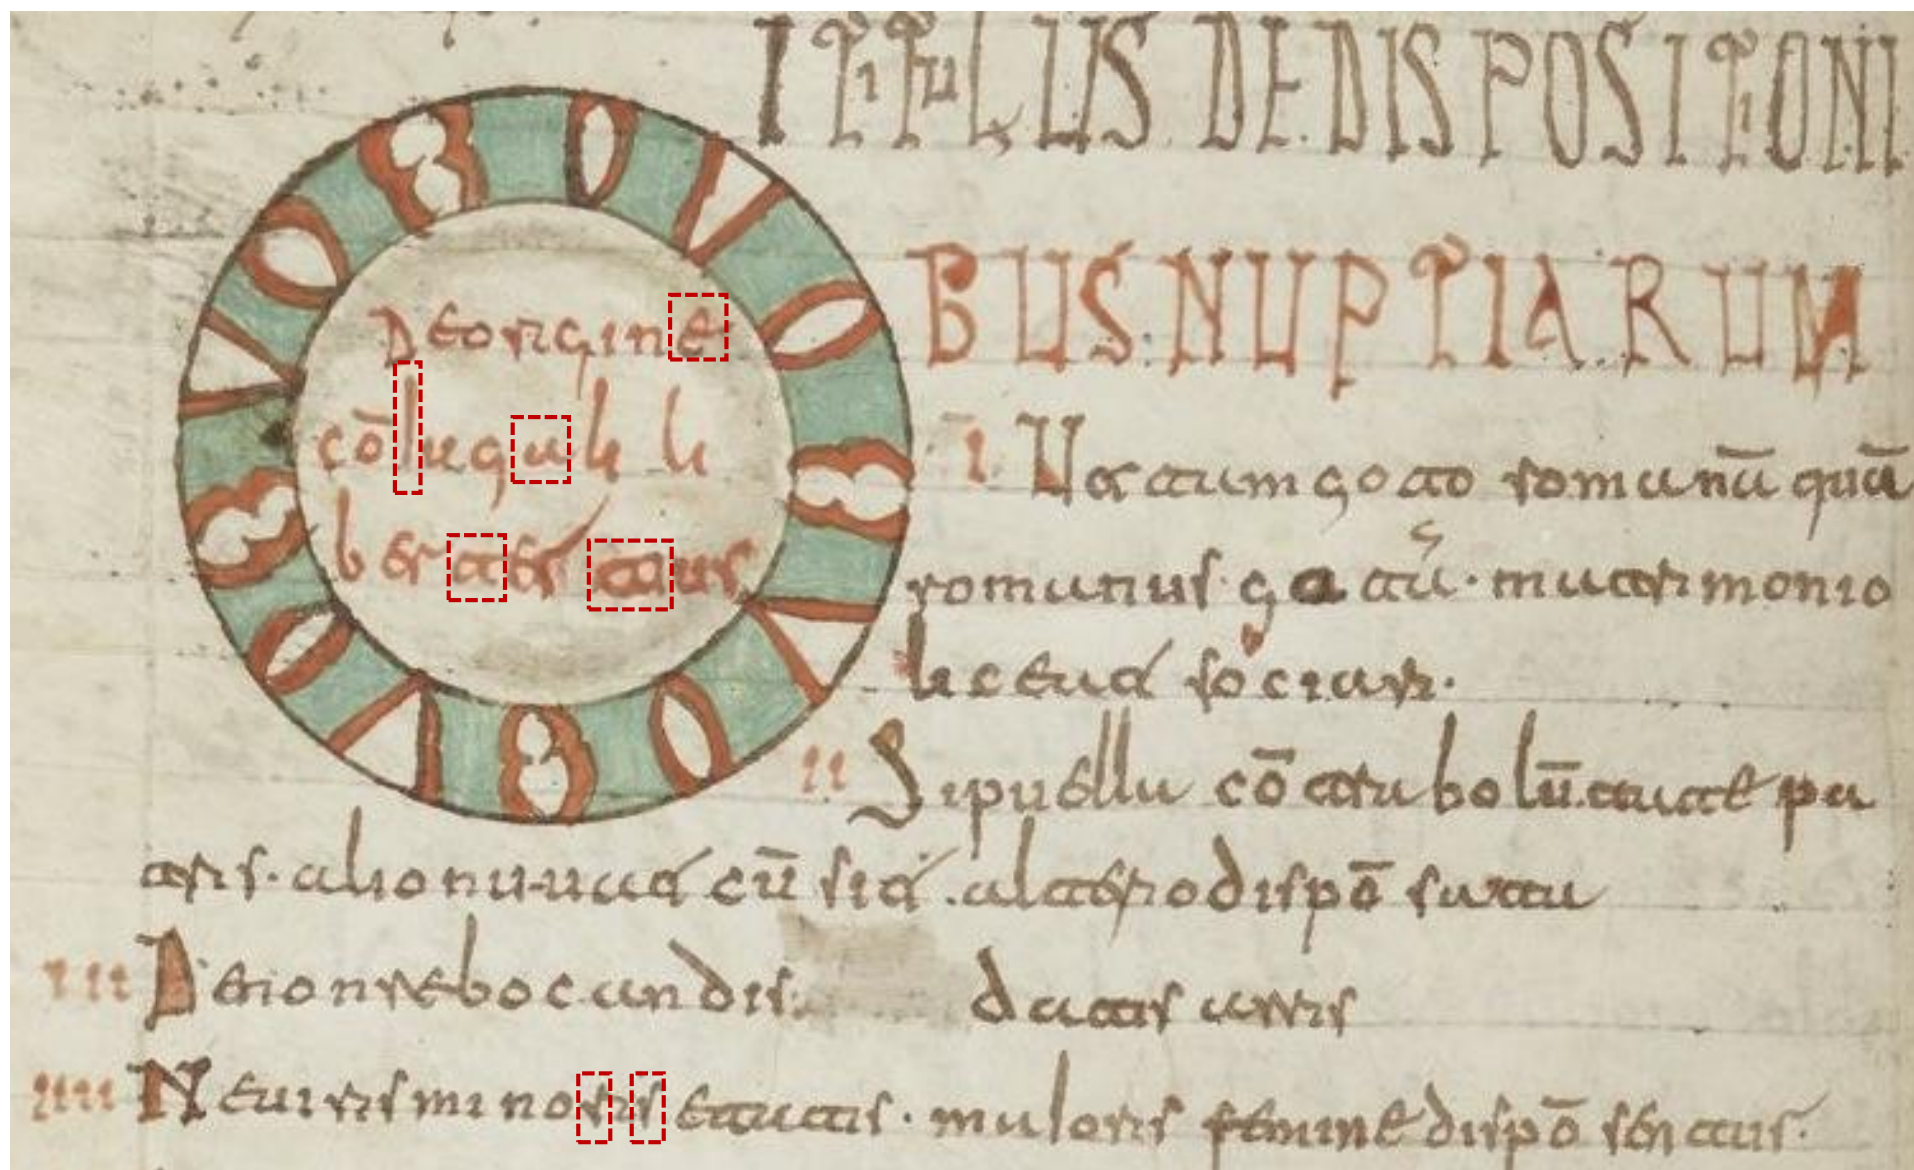 ITITULUS DEDISPOSITIONI
BUS NUPTIARUM
Deorigine
cōiugali li
ber tertius
I Ut tam goto romanā quā
romanus gotā matrimonio
liceat sociari.
II Si puella cōtra bolūtate pa
tris. alio nuuat cū sit alteri dispōsata
III De non rebocandis datis arris
IIII Ne uiris minoris etatis. maioris femine dispōsentur.